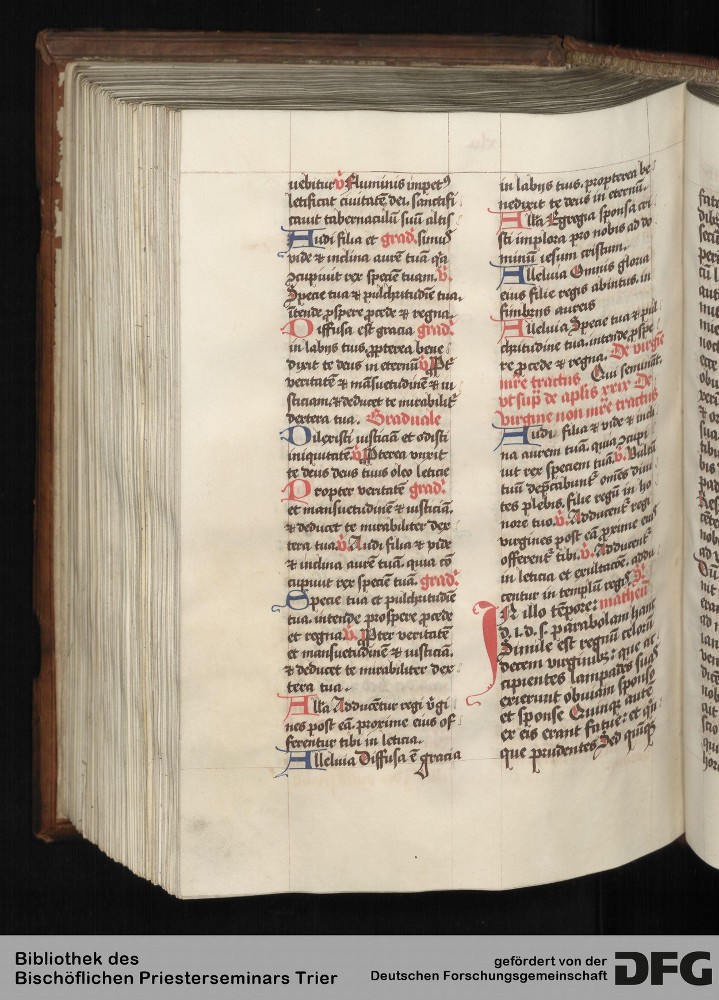 uebitur v̄ Fluminis impetꝰ
letificat ciuitatē dei. sanctifi
cauit tabernaculū suū altisˢ
Audi filia et grad. simulˢ
vide ⁊ inclina aurē tuā q̄a
ꝯcupiuit rex speciē tuam. v̄.
Specie tua ⁊ pulchritudīe tua.
ītende ꝓspere ꝓcede ⁊ regna.
Diffusa est gracia grad.
in labijs tuis. ꝓpterea bene
dixit te deus in eternū v̄ Ꝓpt̄
veritatē ⁊ māsuetudinē ⁊ iu
sticiam. ⁊ deducet te mirabilit̄
dextera tua. Graduale
Dilexisti iusticiā et odisti
iniquitatē. v̄ Ꝓpterea vnxit
te deus deus tuus oleo leticie
Propter veritatē grad.
et mansuetudinē ⁊ iusticiā.
⁊ deducet te mirabiliter dex
tera tua v̄. Audi filia ⁊ vide
⁊ inclina aurē tuā. quia cō
cupiuit rex speciē tuā. grad.
Specie tua et pulchritudīe
tua. intende prospere ꝓcede
et regna. v̄. Ꝓpter veritatē
et mansuetudinē ⁊ iusticiā.
⁊ deducet te mirabiliter dex
tera tua.
All'a Adducētur regi v̓gi
nes post eā. proxime eius of
ferentur tibi in leticia.
Alleluia Diffusa ē gracia
in labijs tuis. propterea be
nedixit te deus in eternū.
All'a Egregia sponsa cri
sti implora pro nobis ad do
minū iesum cristum.
Alleluia Omnis gloria
eius filie regis abintus. in
fimbrijs aureis
Alleluia Specie tua ⁊ pul
chritudine tua. intende ꝓspe
re ꝓcede ⁊ regna. De virgīe
mr̄e tractus. Qui semināt.
vt sup̄ de aplis xxix De
virgine non mr̄e tractus
Audi filia ⁊ vide ⁊ incli
na aurem tuā. quia ꝯcupi
uit rex speciem tuā. v̄. Vultū
tuū dep̄cabunt̄ om̄es diui
tes plebis. filie regū in ho
nore tuo. v̄. Adducent̄ regi
virgines post eā ꝓxime eiꝰ
offerent̄ tibi. v̄. Adducent̄
in leticia et exultacōe. addu
centur in templū regis.
In illo tēpore: matheū
d. i. d. s. parabolam hanc
Simile est regnū celorū
decem virginibꝫ: que ac
cipientes lampades suas
exierunt obuiam sponso
et sponse Quinqꝫ autē
ex eis erant fatue: et qūi
que prudentes Sed quīqꝫ
Bibliothek des
Bischöflichen Priesterseminars Trier
gefördert von der
Deutschen Forschungsgemeinschaft
DFG